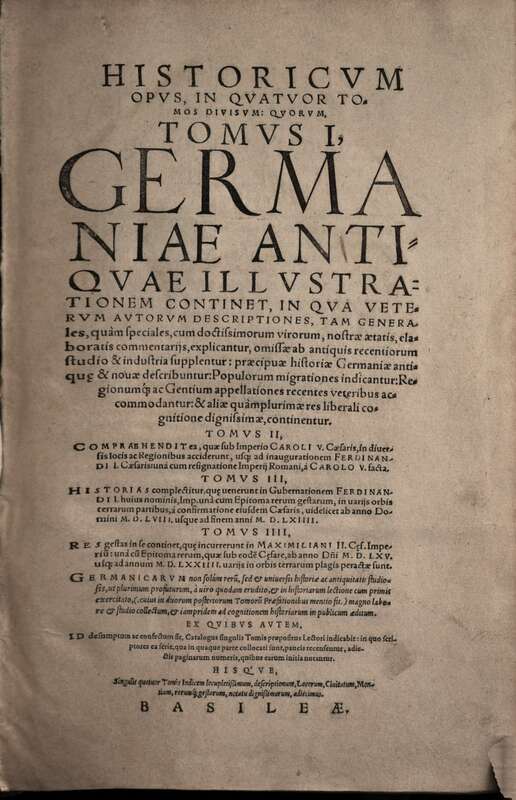 HISTORICVM
OPVS, IN QVATVOR TO-
MOS DIVISVM: QVORVM,
TOMVS I,
GERMA
NIAE ANTI-
QVAE ILLVSTRA-
TIONEM CONTINET, IN QVA VETE-
RVM AVTORVM DESCRIPTIONES, TAM GENERA-
les, quàm speciales, cum doctissimorum virorum, nostræ ætatis, ela-
boratis commentarijs, explicantur, omissæ ab antiquis recentiorum
studio & industria supplentur: præcipuæ historiæ Germaniæ anti-
quę & nouæ describuntur: Populorum migrationes indicantur: Re-
gionumq́; ac Gentium appellationes recentes veteribus ac-
commodantur: & aliæ quàmplurimæ res liberali co-
gnitione dignissimæ, continentur.
TOMVS II,
COMPRAEHENDIT ea, quæ sub Imperio CAROLI V. Cæsaris, in diuer-
sis locis ac Regionibus acciderunt, usq; ad inaugurationem FERDINAN-
DI I. Cæsaris: una cum resignatione Imperij Romani, à CAROLO V. facta.
TOMVS III,
HISTORIAS complectitur, quę uenerunt in Gubernationem FERDINAN-
DI I. huius nominis, Imp. unà cum Epitoma rerum gestarum, in uarijs orbis
terrarum partibus, à confirmatione eiusdem Cæsaris, uidelicet ab anno Do-
mini M. D. LVIII, usque ad finem anni M. D. LXIIII.
TOMVS IIII,
RES gestas in se continet, quę incurrerunt in MAXIMILIANI II. Cęs. Impe-
riū: unà cū Epitoma rerum, quæ sub eodē Cęsare, ab anno Dñi M. D. LXV.
usq; ad annum M. D. LXXIIII. uarijs in orbis terrarum plagis peractæ sunt.
GERMANICARVM non solùm rerū, sed & uniuersis historiæ ac antiquitatis studio-
sis, ut plurimum profuturum, à uiro quodam erudito, & in historiarum lectione cum primis
exercitato, (cuius in duorum posteriorum Tomorū Præfationibus mentio fit.) magno labo-
re & studio collectum, & iampridem ad cognitionem historiarum in publicum æditum.
EX QVIBVS AVTEM,
ID desumptum ac confectum sit, Catalogus singulis Tomis præpositus Lectori indicabit: in quo scri-
ptores ea serie, qua in quaque parte collocati sunt, paucis recensentur, adie-
ctis paginarum numeris, quibus earum initia notantur.
HISQVE,
Singulis quatuor Tomis Indicem locupletissimum, descriptionum, Locorum, Ciuitatum, Mon-
tium, rerumq́; gestarum, notatu dignissimarum, adiecimus.
BASILEÆ.